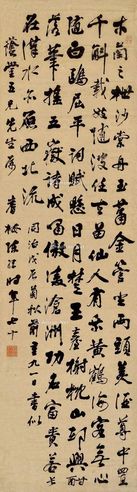 木蘭之枻沙棠舟玉簫金管坐兩頭美酒尊中置
千斛載妓隨波任去留仙人有待乘黃鶴海客無心
隨白鷗屈平詞賦懸日月楚王臺榭空山邱興酣
落筆搖五嶽詩成笑傲凌滄洲功名富貴若長
在漢水亦應西北流 同治戊辰菊秋前九一日書似
蔭堂五兄先生屬 時年七十